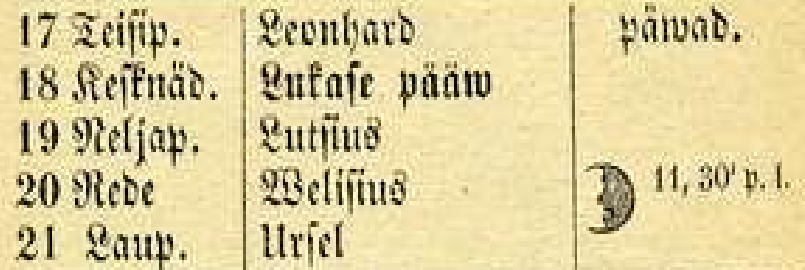 17 Teisip. Leonhard päwad.
18 Kesknäd. Lukase pääw
19 Neljap. Lutsius
20 Rede Welisius 11, 30' p. l.
21 Laup. Ursel